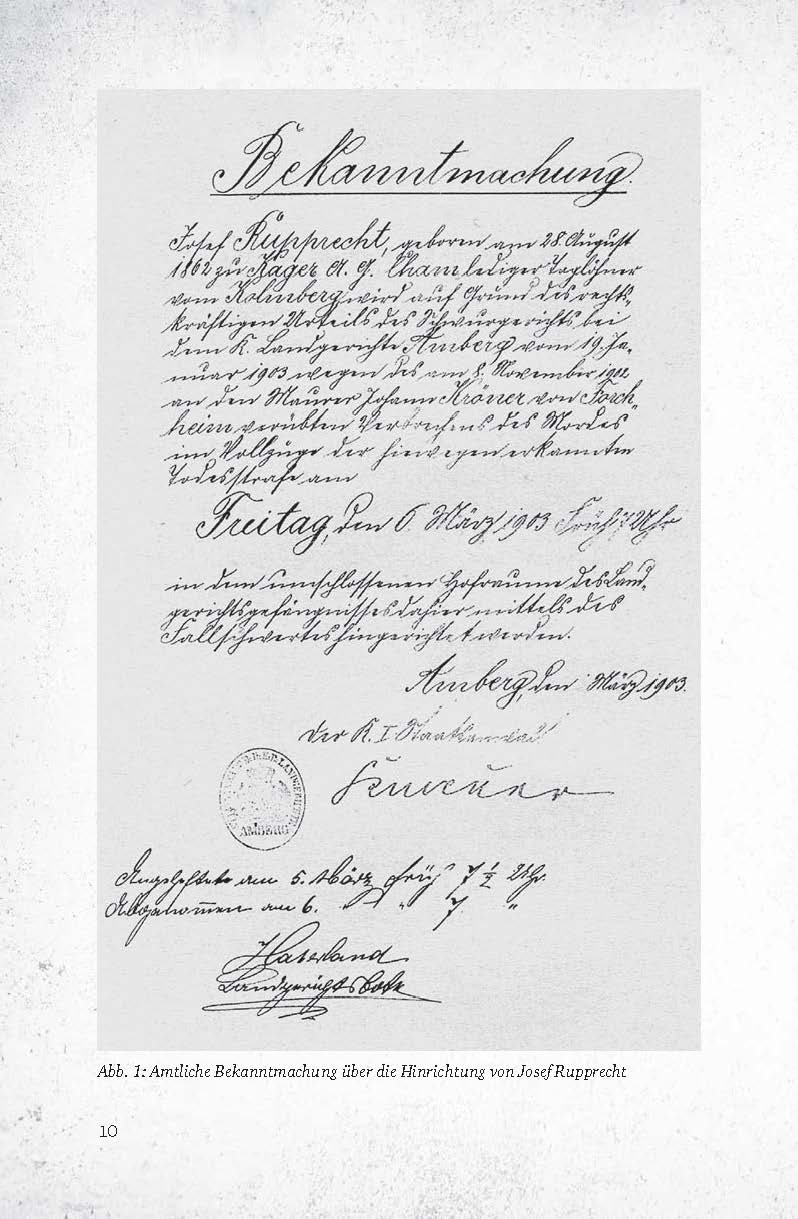 Bekanntmachung.
Josef Rupprecht, geboren am 28. August
1862 zu Kager A. G. Cham lediger Taglöhner
vom Kolmberg wird auf Grund des rechts-
kräftigen Urteils des Schwurgerichts bei
dem K. Landgerichte Amberg vom 19. Ja-
nuar 1903 wegen des am 8. November 1902
an den Maurer Johann Kröner von Forch-
heim verübten Verbrechens des Mordes
im Vollzuge der hiewegen erkannten
Todesstrafe am
Freitag, den 6. März 1903 Früh 7 Uhr
in dem umschlossenen Hofraume des Land-
gerichtsgefängnisses dahier mittels des
Fallschwertes hingerichtet werden.
Amberg, den März 1903.
Der K. I Staatsanwalt
AMBERG
Angeheftet am 5. März früh 7 ½ Uhr.
Abgenom̅en am 6. " " 7 "
Haberland
Landgerichtsbote
Abb. 1: Amtliche Bekanntmachung über die Hinrichtung von Josef Rupprecht
10